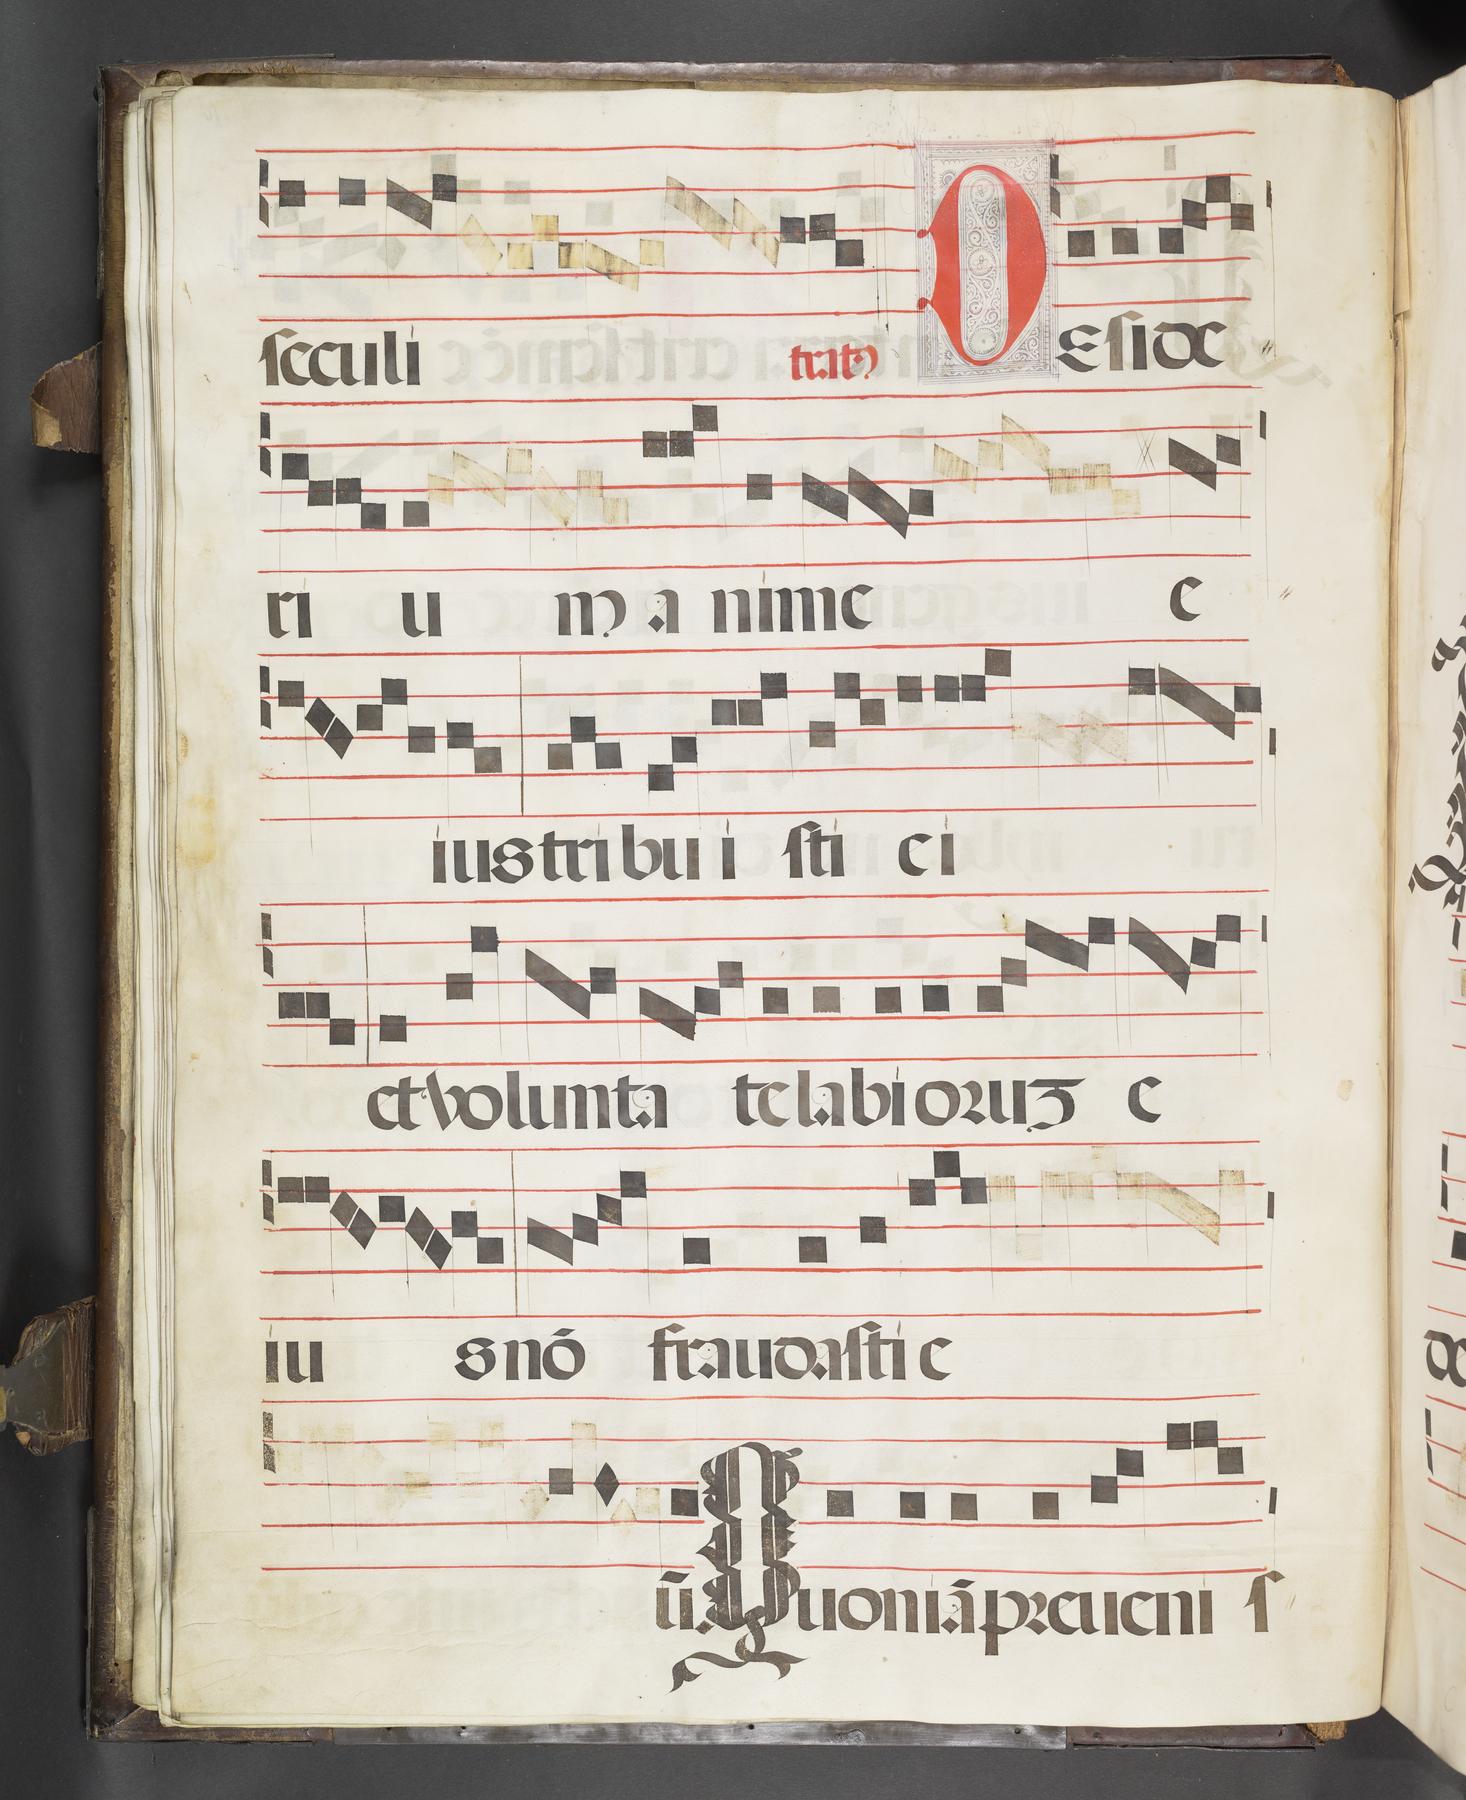 seculi tratꝯ DEside
ri u m a nime e
iustribui sti ei
et volunta te labioruꝫ e
iu s nō fraudasti e
ū. Quoniā preueni s